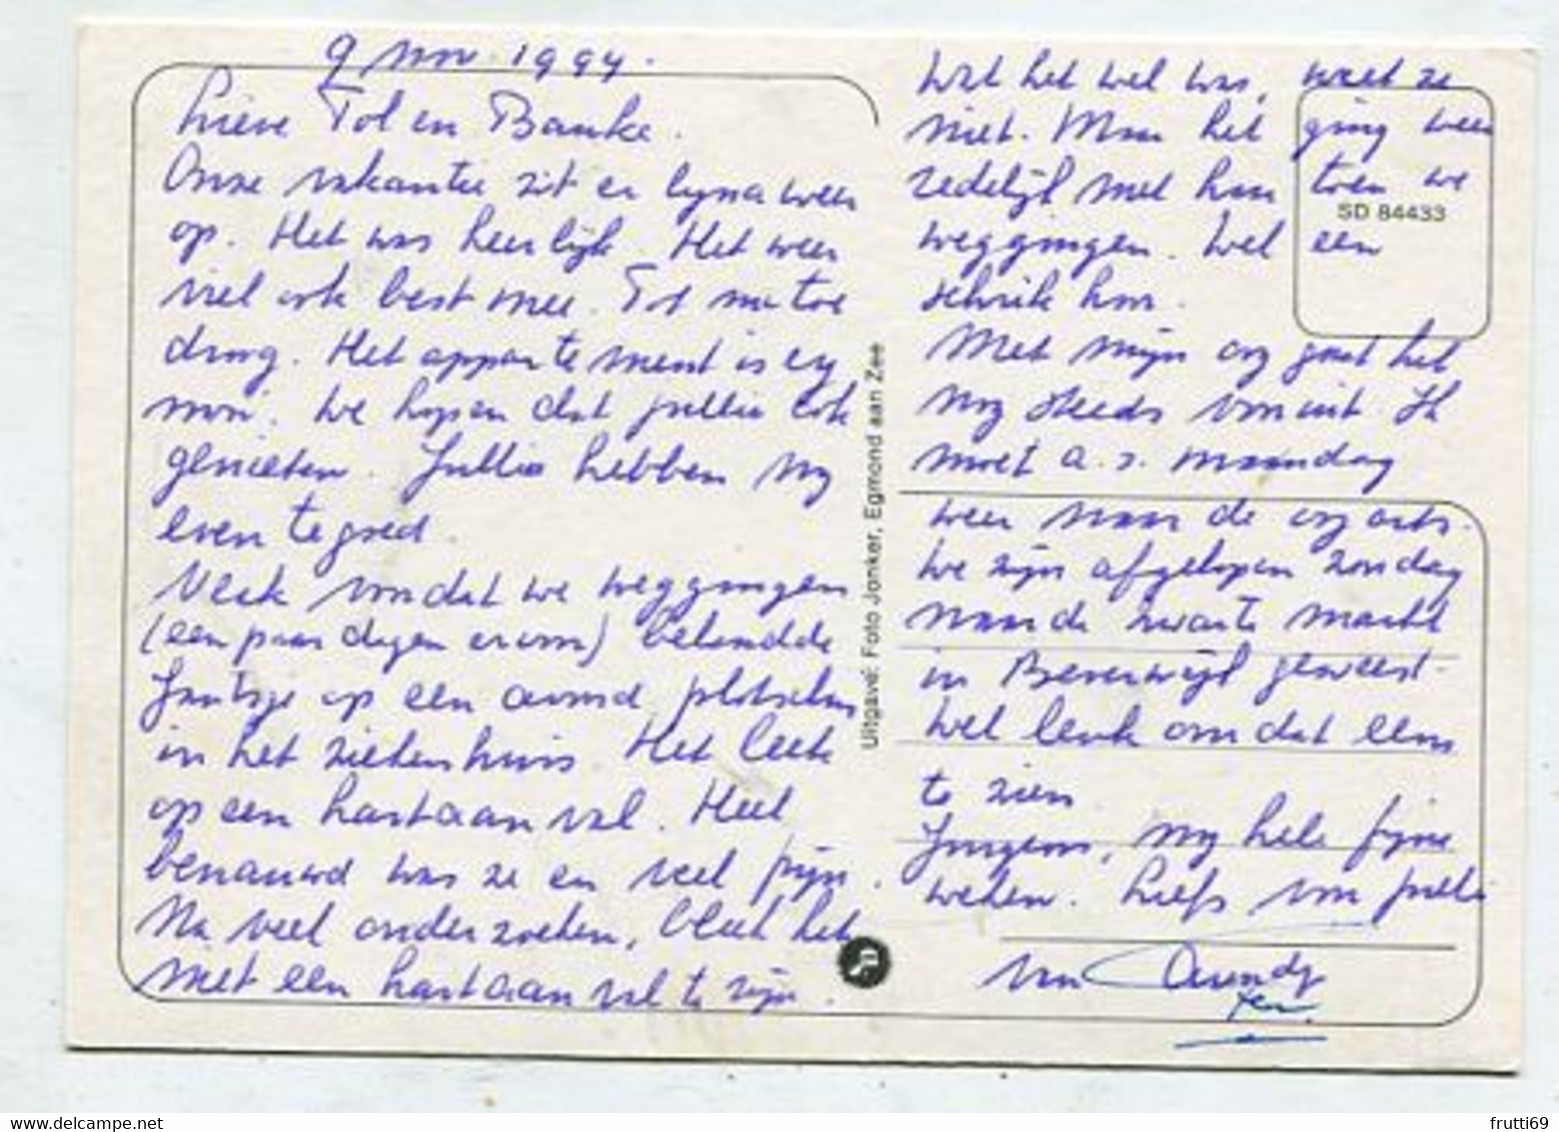 9 nov 1994.
Lieve Tol en Bauke.
Onze vakantie zit er byna weer
op. Het was heerlijk. Het weer
viel ook best mee. Tot nu toe
droog. Het appartement is erg
mooi. We hopen dat jullie ook
genieten. Jullie hebben nog
even te goed.
Vlak voordat we weggingen
(een paar dagen ervoor) belandde
Jantsje op een avond plotseling
in het ziekenhuis. Het leek
op een hartaanval. Heel
benauwd was ze en veel pijn.
Na veel onderzoeken, bleek het
niet een hartaanval te zijn.
Wat het wel was, weet ze
niet. Maar het ging weer
redelijk met haar toen we
weggingen. Wel een
schrik hoor.
Met mijn oog gaat het
nog steeds vooruit. Ik
moet a.s. maandag
weer naar de oogarts.
We zijn afgelopen zondag
naar de zwarte markt
in Beverwijk geweest.
Wel leuk om dat eens
te zien
Jongens, nog hele fijne
weken. Liefs voor jullie
van
SD 84433
Uitgave: Foto Jonker, Egmond aan Zee
frutti69